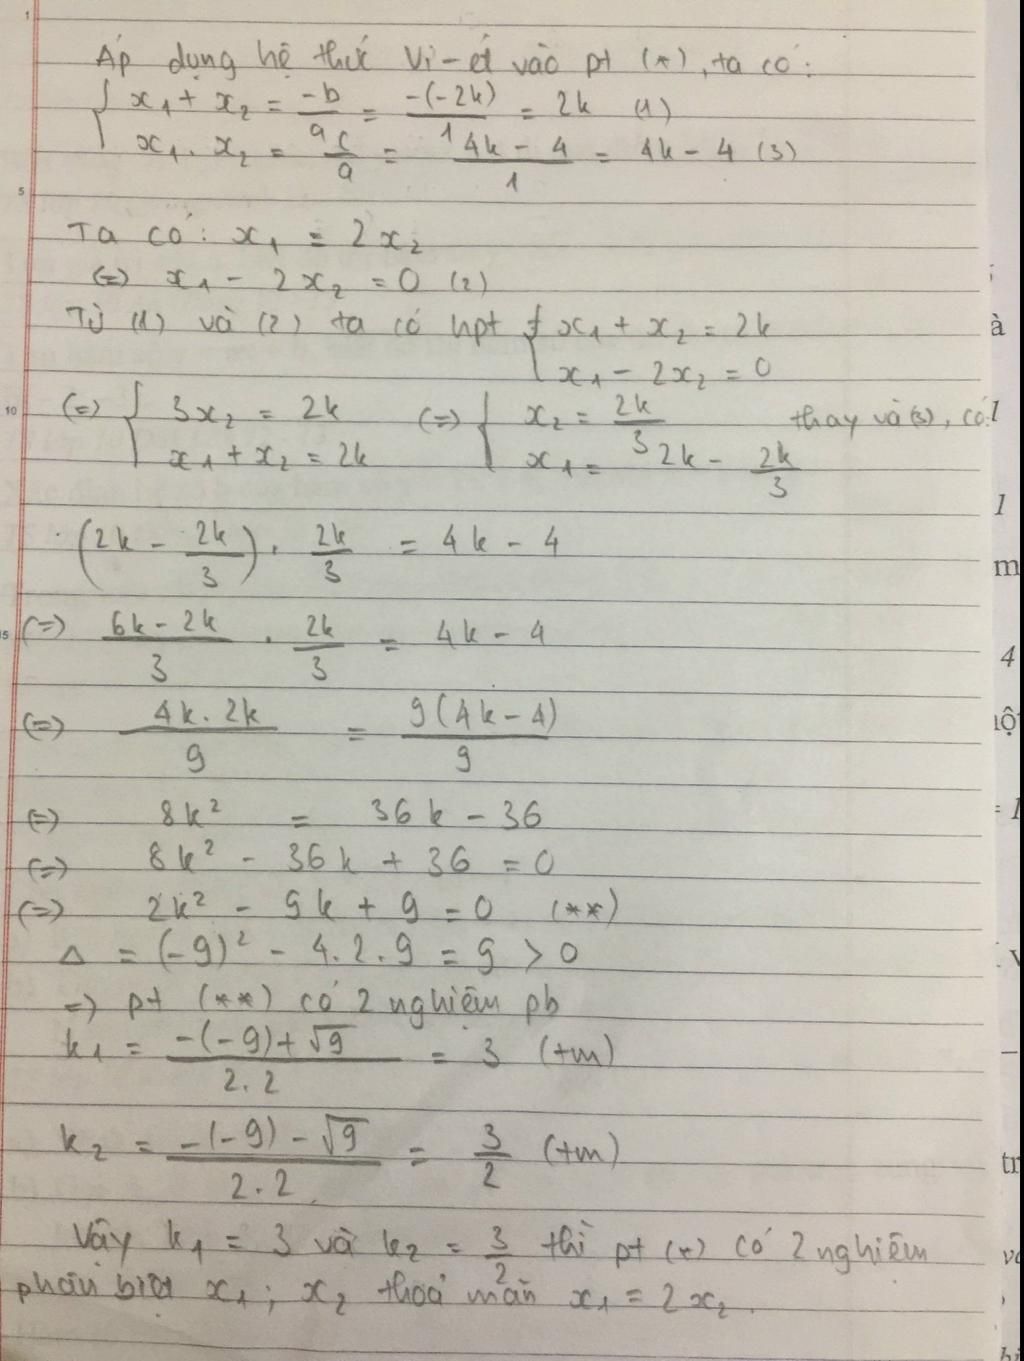 Áp dụng hệ thức Vi-ét vào pt (*), ta có:
{ x₁ + x₂ = -b/a = -(-2k)/1 = 2k (1)
x₁ . x₂ = c/a = 4k - 4/1 = 4k - 4 (3)
Ta có: x₁ = 2x₂
(=) x₁ - 2x₂ = 0 (2)
Từ (1) và (2) ta có hpt { x₁ + x₂ = 2k
x₁ - 2x₂ = 0
(=) { 3x₂ = 2k (=) { x₂ = 2k/3 thay và (3), có:
x₁ + x₂ = 2k x₁ = 2k - 2k/3
(2k - 2k/3) . 2k/3 = 4k - 4
(=) 6k - 2k/3 . 2k/3 = 4k - 4
(=) 4k . 2k/9 = 9(4k - 4)/9
(=) 8k² = 36k - 36
(=) 8k² - 36k + 36 = 0
(=) 2k² - 9k + 9 = 0 (**)
Δ = (-9)² - 4.2.9 = 9 > 0
=) pt (**) có 2 nghiệm pb
k₁ = -(-9)+√9/2.2 = 3 (tm)
k₂ = -(-9)-√9/2.2 = 3/2 (tm)
Vậy k₁ = 3 và k₂ = 3/2 thì pt (*) có 2 nghiệm
phân biệt x₁; x₂ thoả mãn x₁ = 2x₂.